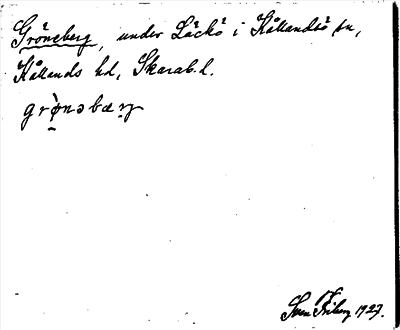 Gröneberg, under Läckö i Kållandsö sn,
Kållands hd, Skarab. l.
grø̀nəbærɣ
Sven Friberg 1927.